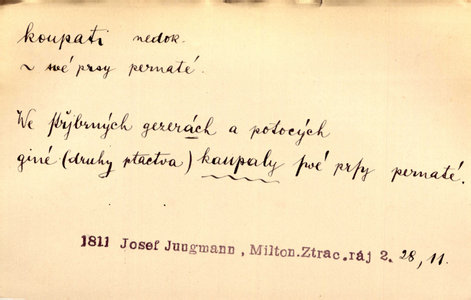 koupati nedok.
~ své prsy pernaté.
We střjbrných gezerách a potocých
giné (druhy ptactva) kaupaly swé prsy pernaté.
1811 Josef Jungmann, Milton.Ztrac.ráj 2. 28, 11.